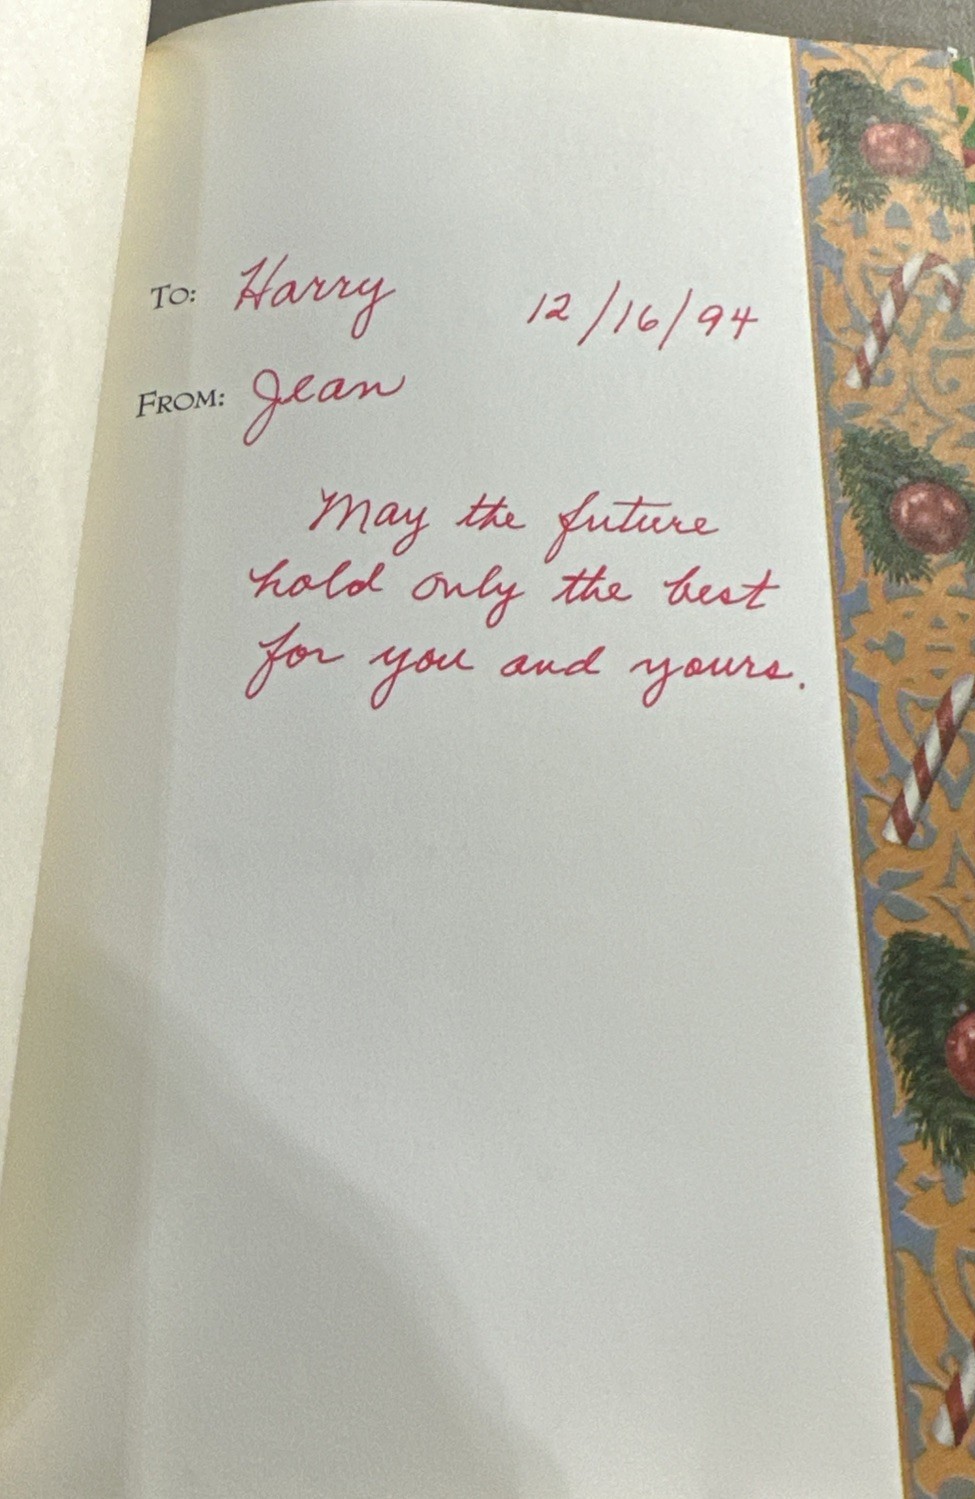 TO: Harry 12/16/94
FROM: Jean
May the future
hold only the best
for you and yours.